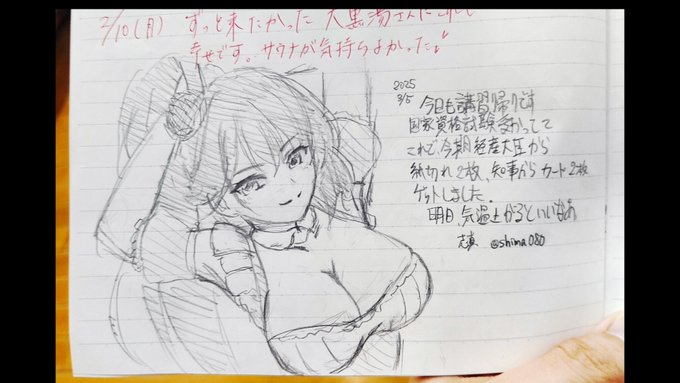 2/10(月) ずっと来たかった 大黒湯さんに来れて
幸せです。サウナが気持ちよかった!
2025
3/5
今日も講習帰りです
国家資格試験受かってて
これで今期経産大臣から
紙切れ2枚、知事からカード2枚
ゲットしました.
明日、気温上がるといいなあ
志真 @shima080